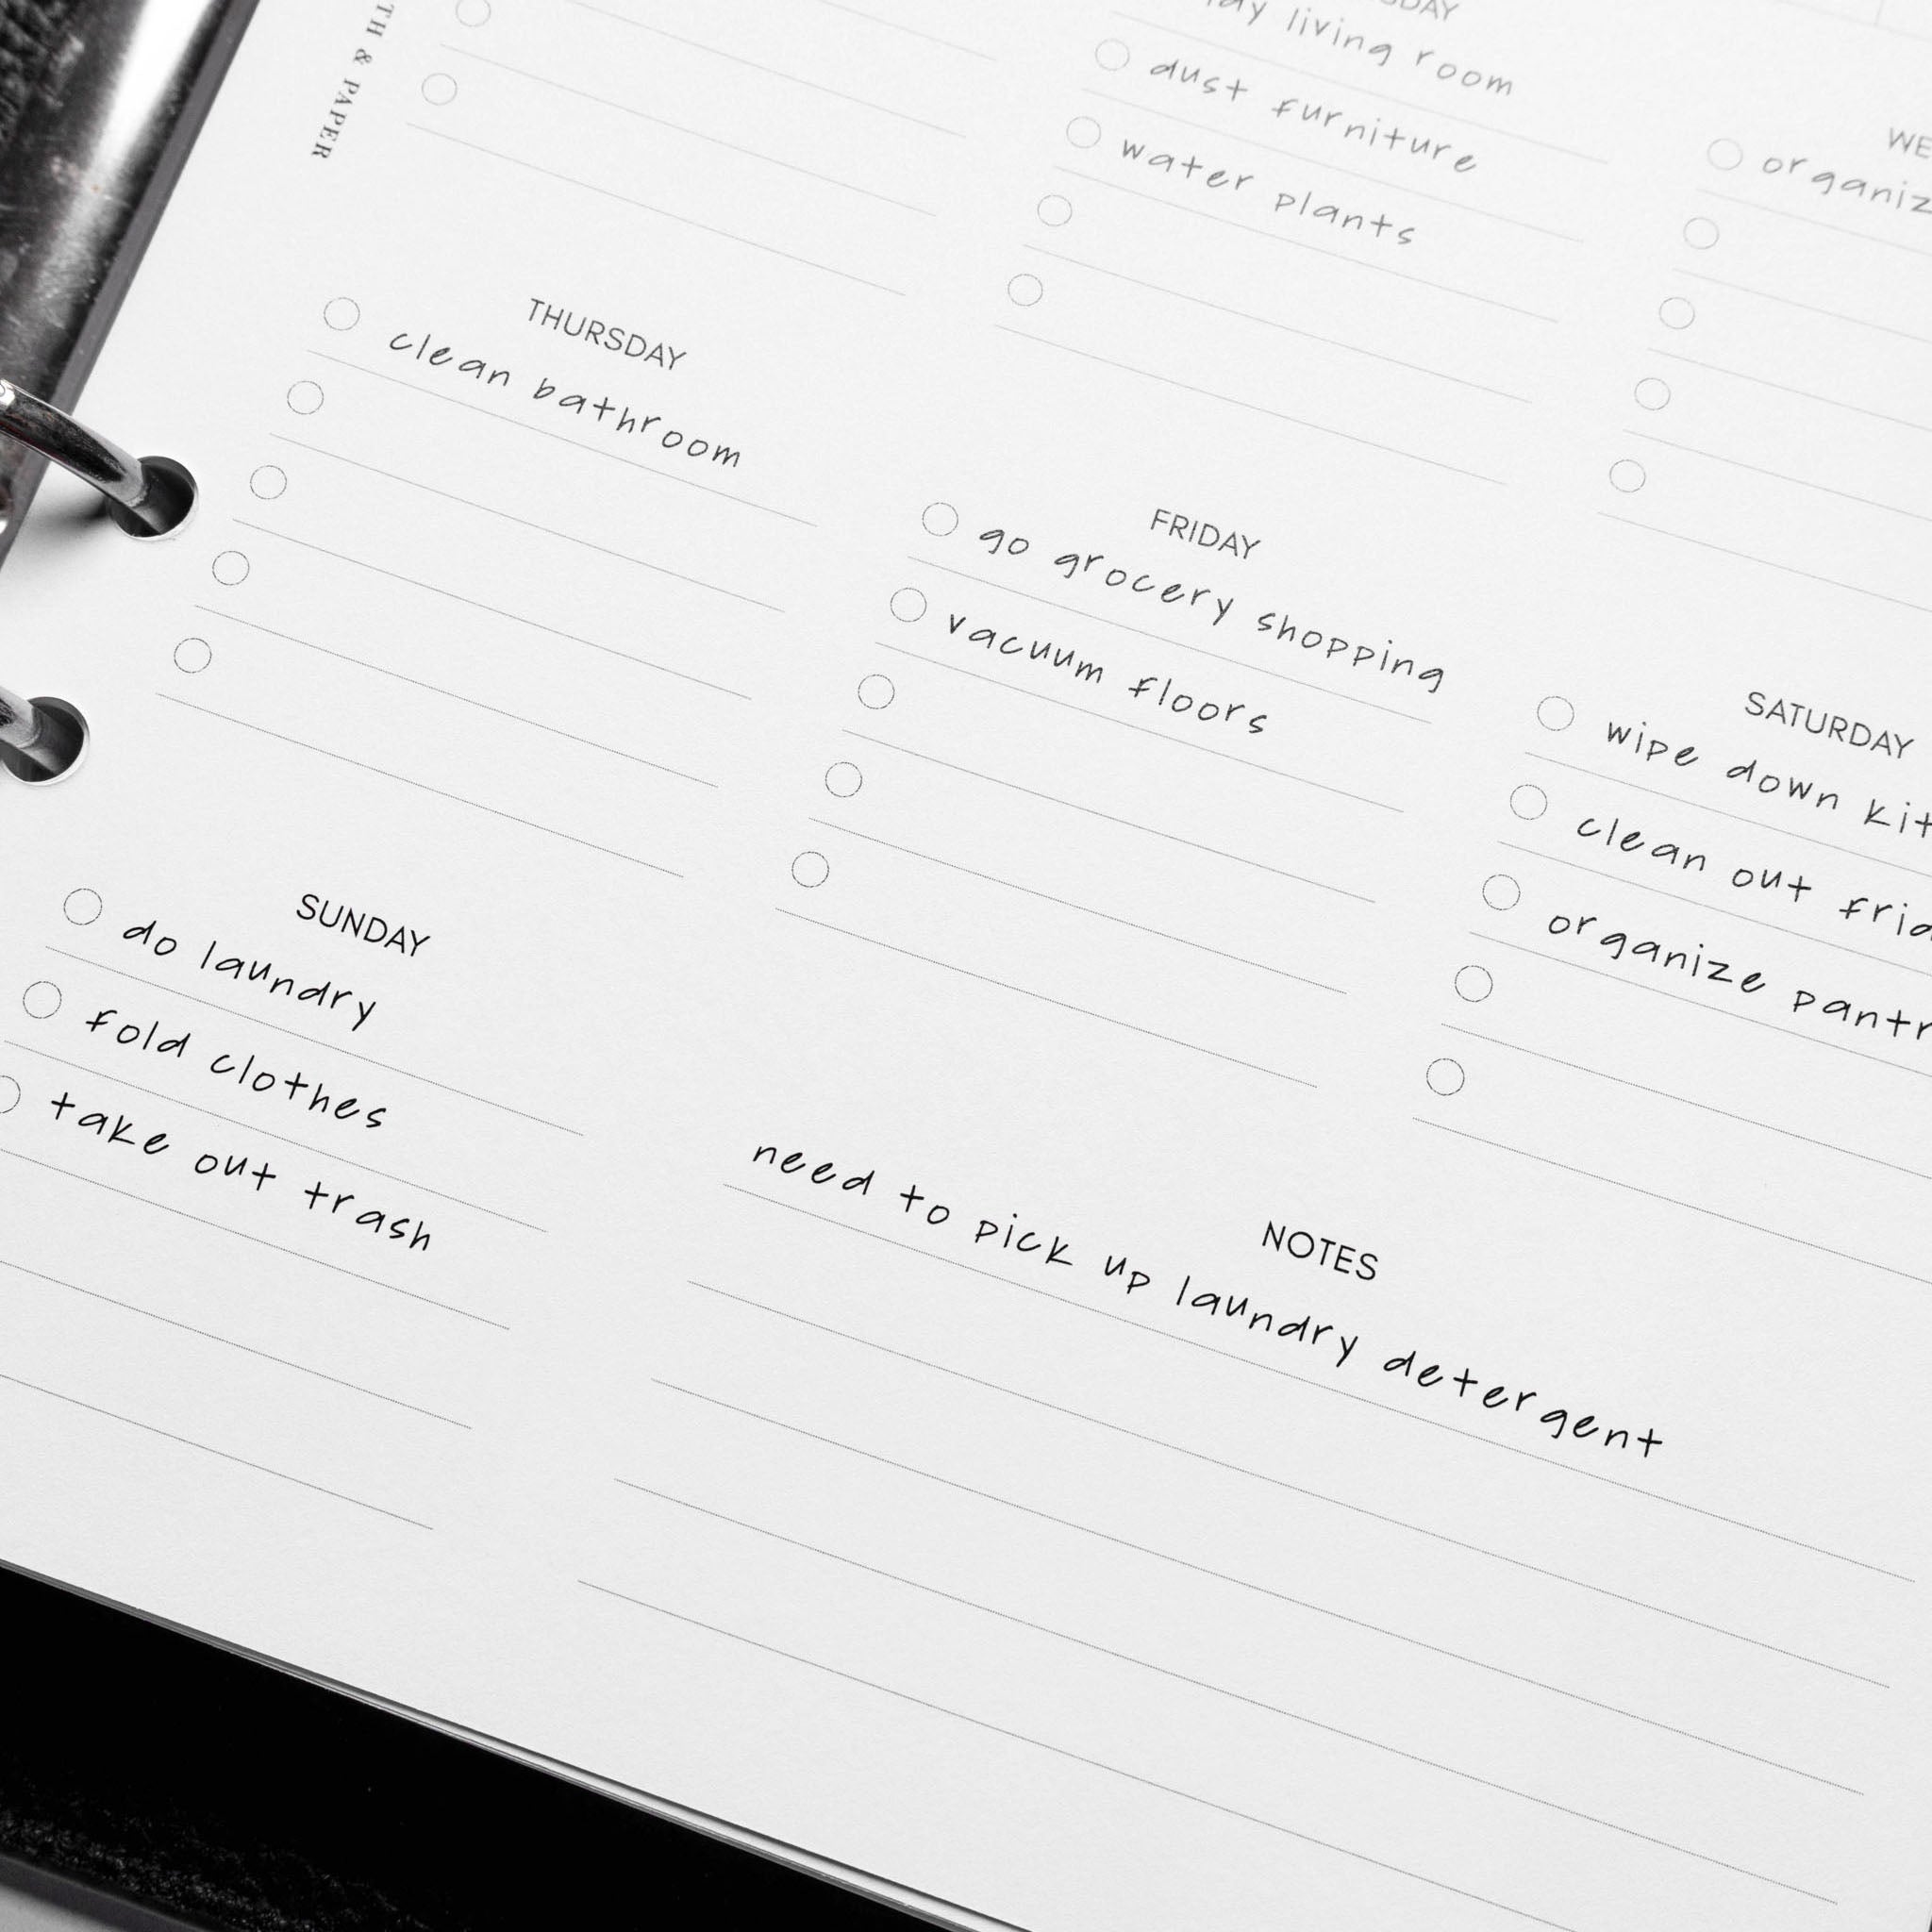 TH & PAPER
living room
dust furniture
water plants
THURSDAY
clean bathroom
FRIDAY
go grocery shopping
vacuum floors
SATURDAY
wipe down
clean out
organize
SUNDAY
do laundry
fold clothes
take out trash
NOTES
need to pick up laundry detergent